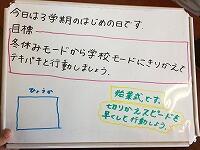 今日は3学期のはじめの日です。
目標
冬休みモードから学校モードにきりかえて
テキパキと行動しましょう。
ひょうか
始業式です。
切りかえスピードを
早くして行動しよう。